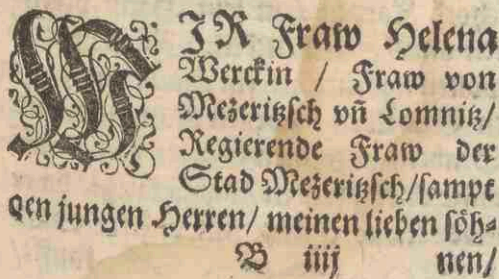 WJR Fraw Helena
Werckin / Fraw von
Mezeritzsch vñ Lomnitz/
Regierende Fraw der
Stad Mezeritzsch/sampt
den jungen Herren/ meinen lieben söh-
B iiij nen/